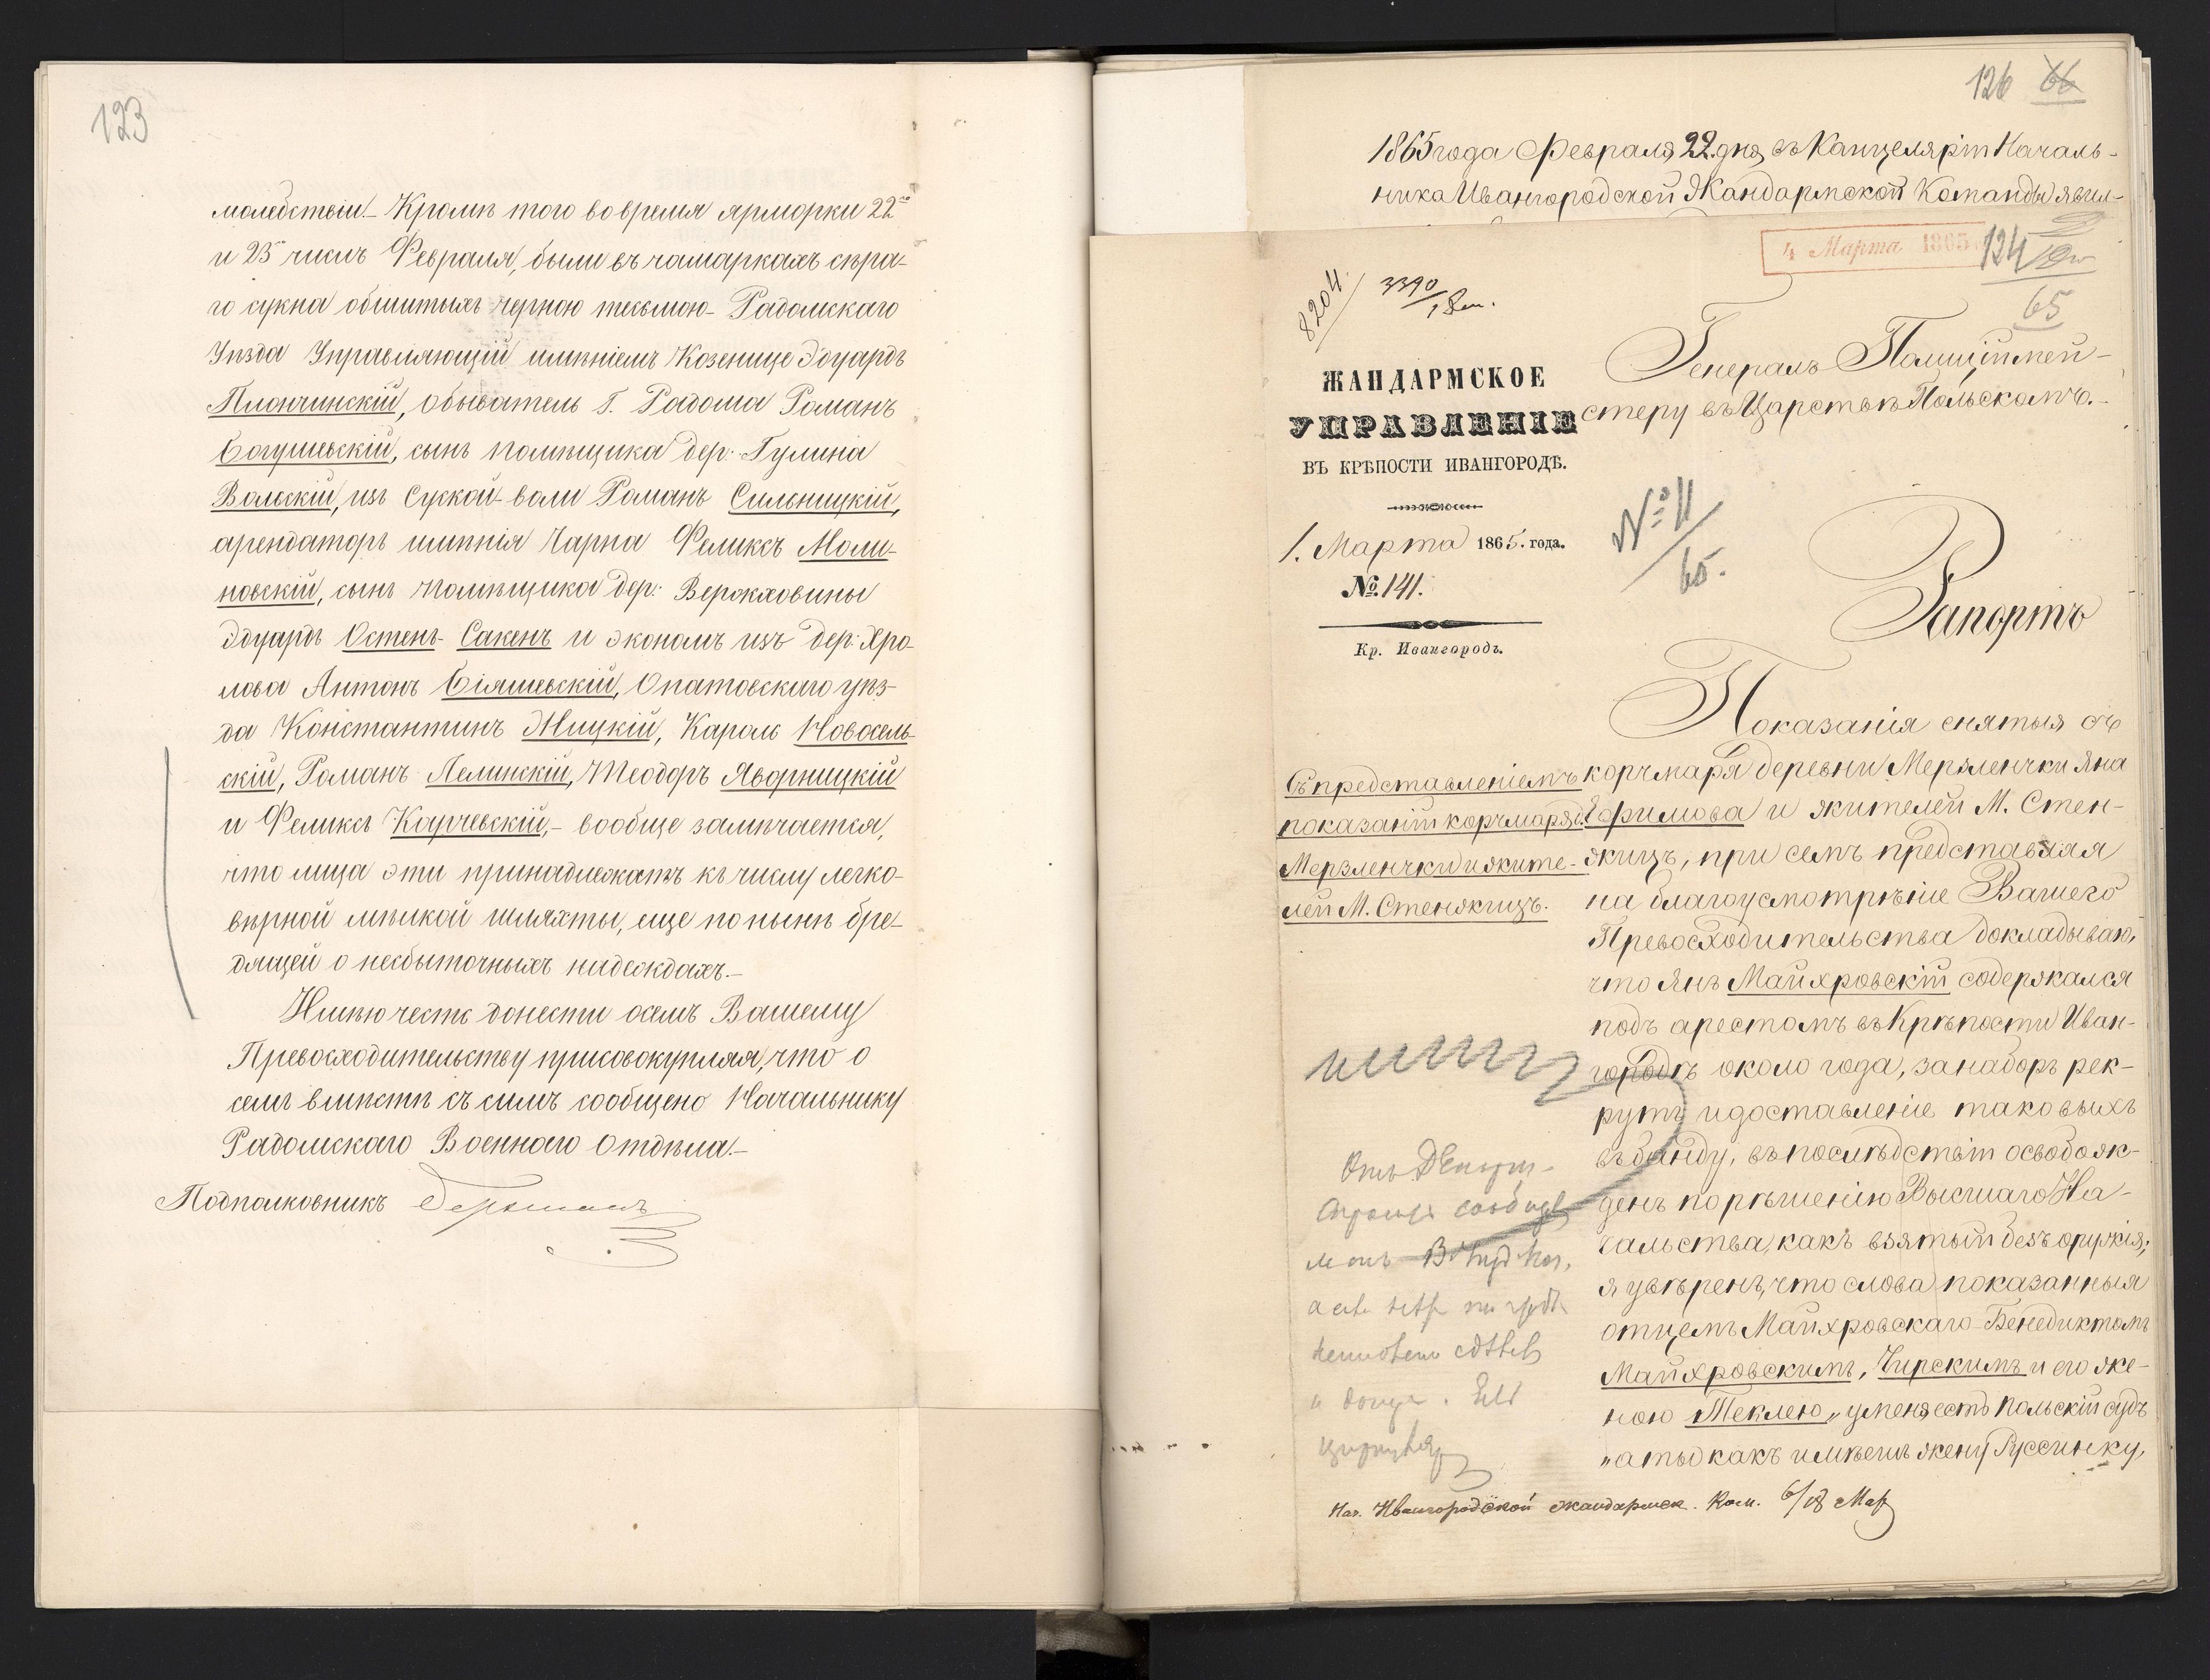 123
моледствіи. Кромѣ того во время ярморки 22го
и 23 числъ Февраля, были въ чамаркахъ сѣра-
го сукна обшитыхъ черною тесьмою - Радомскаго
Уѣзда Управляющій имѣніемъ Козенице Эдуардъ
Плончинскій, обыватель г. Радома Романъ
Богушевскій, сынъ помѣщика дер. Гулина
Вольскій, изъ Суккой-воли Романъ Сильницкій,
арендаторъ имѣнія Чарна Феликсъ Моли-
новскій, сынъ помѣщика дер: Верокховины
Эдуардъ Остенъ-Сакенъ и экономъ изъ дер: Хро-
лова Антонъ Біяшевскій, Опатовскаго уѣз-
да Константинъ Мицкій, Кароль Новосель-
скій, Романъ Лемпскій, Теодоръ Яворницкій
и Феликсъ Карчевскій, - вообще замѣчается,
что лица эти принадлежатъ къ числу легко-
вѣрной мѣлкой шляхты, еще по нынѣ бре-
дящей о несбыточныхъ надеждахъ.-
Имѣю честь донести осемъ Вашему
Превосходительству присовокупляя, что о
семъ вмѣстѣ съ симъ сообщено Начальнику
Радомскаго Военнаго Отдѣла.-
Подполковникъ
126 66
1865 года Февраля 22 дня, въ Канцеляріи Началь-
ника Ивангородской Жандармской Команды явил-
4 Марта 1865
124
65
8204
3390
Генералъ Полиціймей-
стеру въ Царствѣ Польскомъ.-
ЖАНДАРМСКОЕ
УПРАВЛЕНІЕ
ВЪ КРѢПОСТИ ИВАНГОРОДѢ.
1. Марта 1865. года.
№ 141.
Кр. Ивангородъ.
№ 11
65.
Рапортъ
Съ представленіемъ
показаній корчмаря д.
Мерзленчки и жите-
лей М. Стенжицъ.
Показанія снятыя съ
корчмаря деревни Мерзленчки Яна
Ефимова и жителей М. Стен-
жицъ, при семъ представляя
на благоусмотрѣніе Вашего
Превосходительства докладываю,
что Янъ Майхровскій содержался
подъ арестомъ въ Крѣпости Иван-
городѣ около года, за наборъ рек-
рутъ и доставленіе таковыхъ
въ банду, въ послѣдствіи освобож-
денъ по рѣшенію Высшаго На-
чальства, какъ взятый безъ оружія;
я увѣренъ, что слова показанныя
отцемъ Майхровскаго - Бенедиктомъ
Майхровскимъ, Чирскимъ и его же-
ною Теклею „у меня есть Польскій судъ
„а ты какъ имѣешь жену Руссинку,
Нач. Ивангородской жандармск. Ком. 6/18 Мар